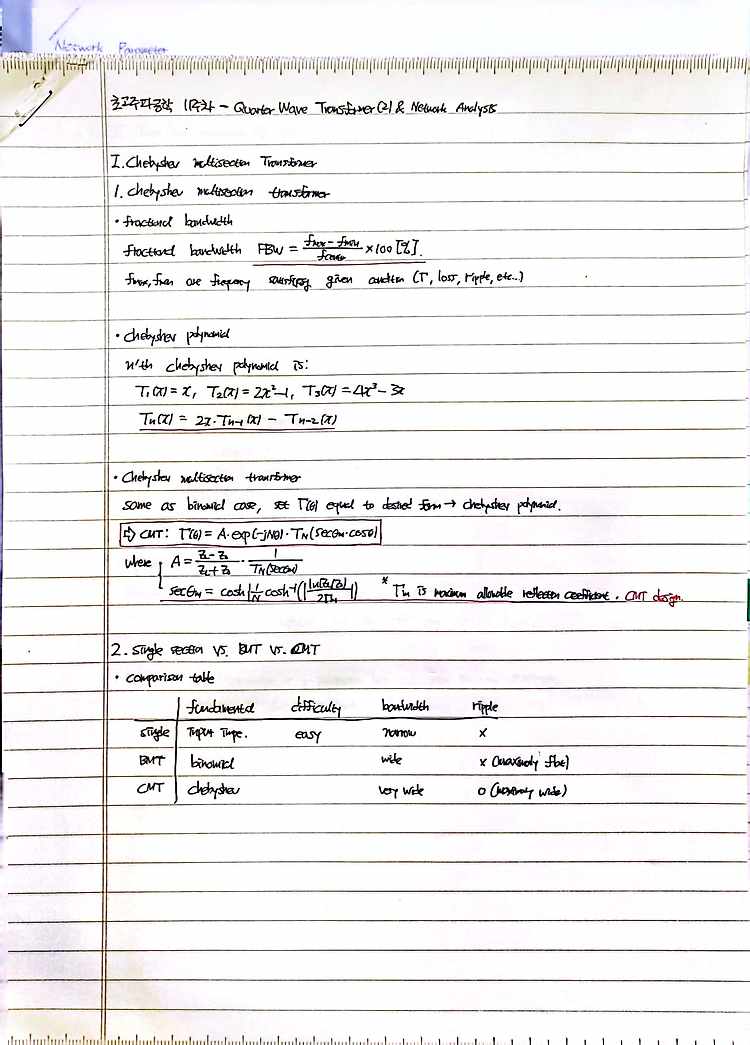 Network Parameter
초고주파공학 11주차 - Quarter Wave Transformer(2) & Network Analysis
I. Chebyshev multisection Transformer
1. Chebyshev multisection transformer
• fractional bandwidth
fractional bandwidth FBW = (fmax - fmin)/fcenter × 100 [%].
fmax, fmin are frequency satisfying given condition (Γ, loss, ripple, etc...)
• Chebyshev polynomial
n'th chebyshev polynomial is:
T₁(x) = x, T₂(x) = 2x²-1, T₃(x) = 4x³ - 3x
Tn(x) = 2x·Tn-1(x) - Tn-2(x)
• Chebyshev multisection transformer
same as binomial case, set Γ(θ) equal to desired form → chebyshev polynomial.
⇒ CMT: Γ(θ) = A·exp(-jNθ)·TN(secθm·cosθ)
where A = (ZL - Z0)/(ZL + Z0) · 1/TN(secθm)
secθm = cosh|1/N cosh⁻¹(|ln(ZL/Z0)/2Γm|) * Γm is maximum allowable reflection coefficient. CMT design.
2. Single section VS. BMT VS. CMT
• comparison table
fundamental difficulty bandwidth ripple
single Input Impe. easy narrow x
BMT binomial wide x (maximally flat)
CMT chebyshev very wide o (maximally wide)